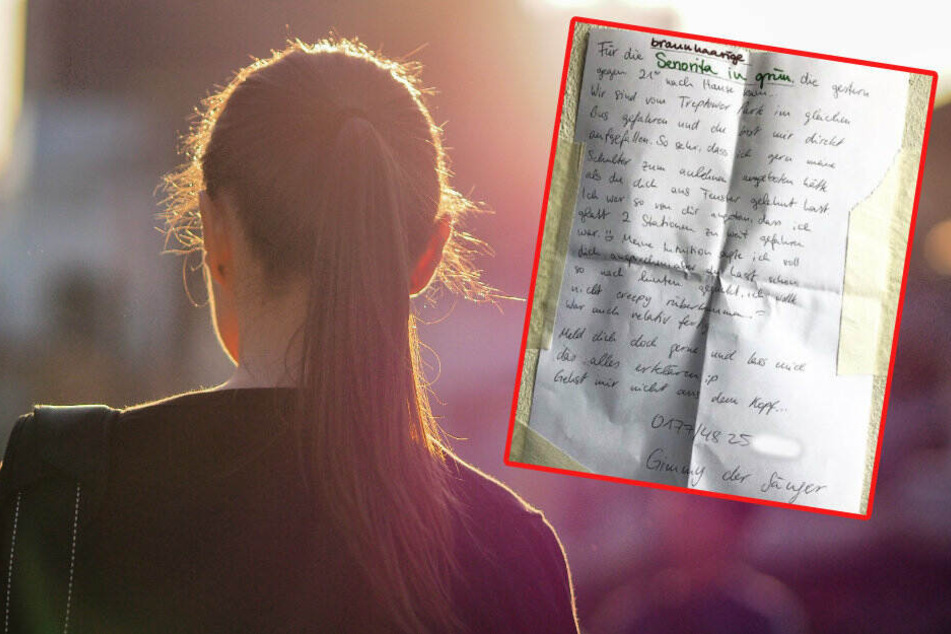 braunhaarige
Für die Senorita in grün, die gestern
gegen 21⁰⁰ nach Hause kam...
Wir sind vom Treptower Park im gleichen
Bus gefahren und du bist mir direkt
aufgefallen. So sehr, dass ich gern meine
Schulter zum anlehnen angeboten hätte
als du dich ans Fenster gelehnt hast
Ich war so von dir angetan, dass ich
glatt 2 Stationen zu weit gefahren
war. Meine Intuition sagte ich soll
dich ansprechen aber du hast schon
so nach hinten ich wollte
nicht creepy rüberkommen.
War auch relativ fertig
Meld dich doch gerne und lass mich
das alles erklären
Gehst mir nicht aus dem Kopf...
0177/48 25
Gimmy der Sänger